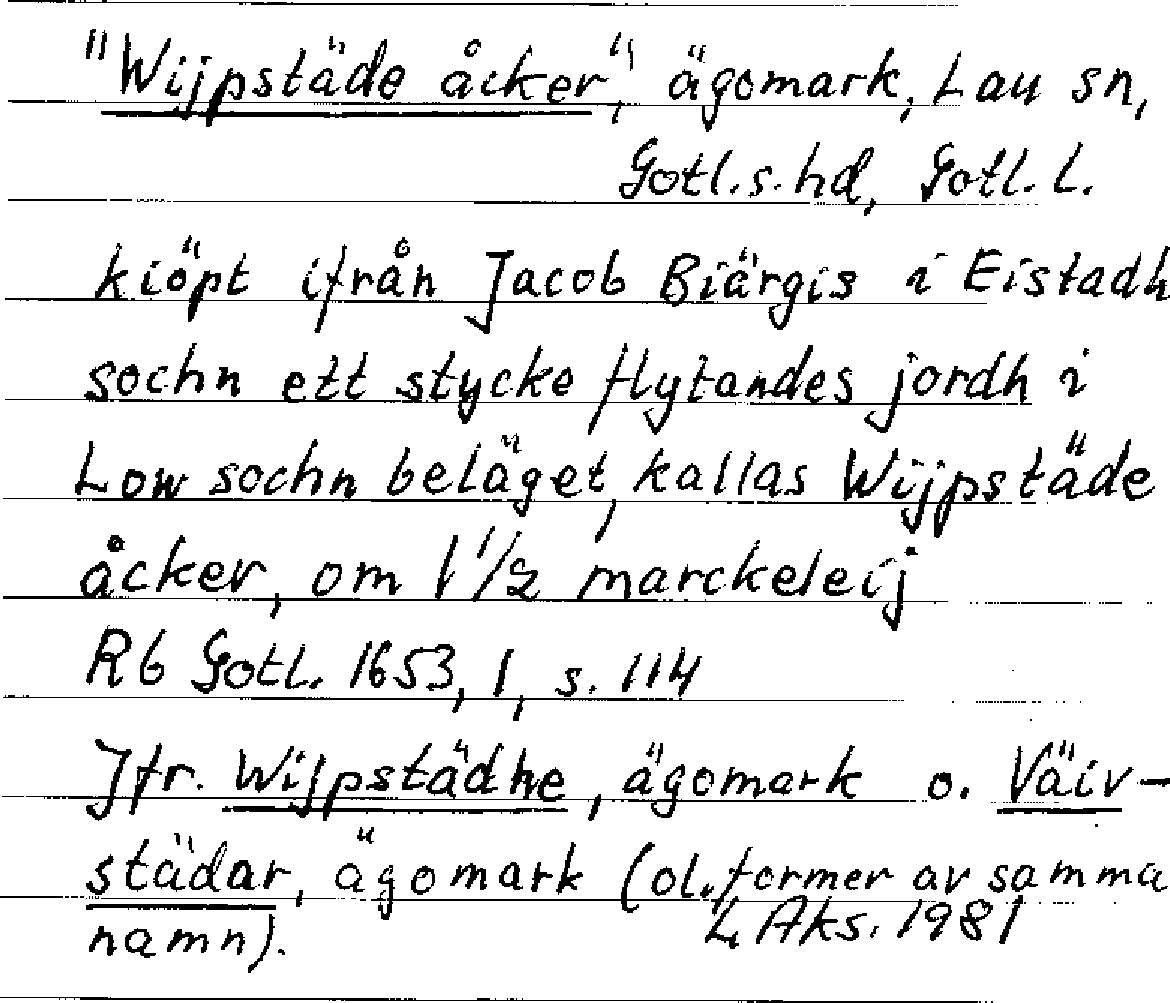 "Wijpstäde åcker", ägomark, Lau sn,
Gotl.s.hd, Gotl.L.
kiöpt ifrån Jacob Biärgis i Eistadh
sochn ett stycke flytandes jordh i
Low sochn beläget, kallas Wijpstäde
åcker, om 1 1/2 marckeleij
Rb Gotl. 1653, 1, s. 114
Jfr. Wijpstädhe, ägomark o. Väiv-
städar, ägomark (ol. former av samma
namn).
L Aks. 1981